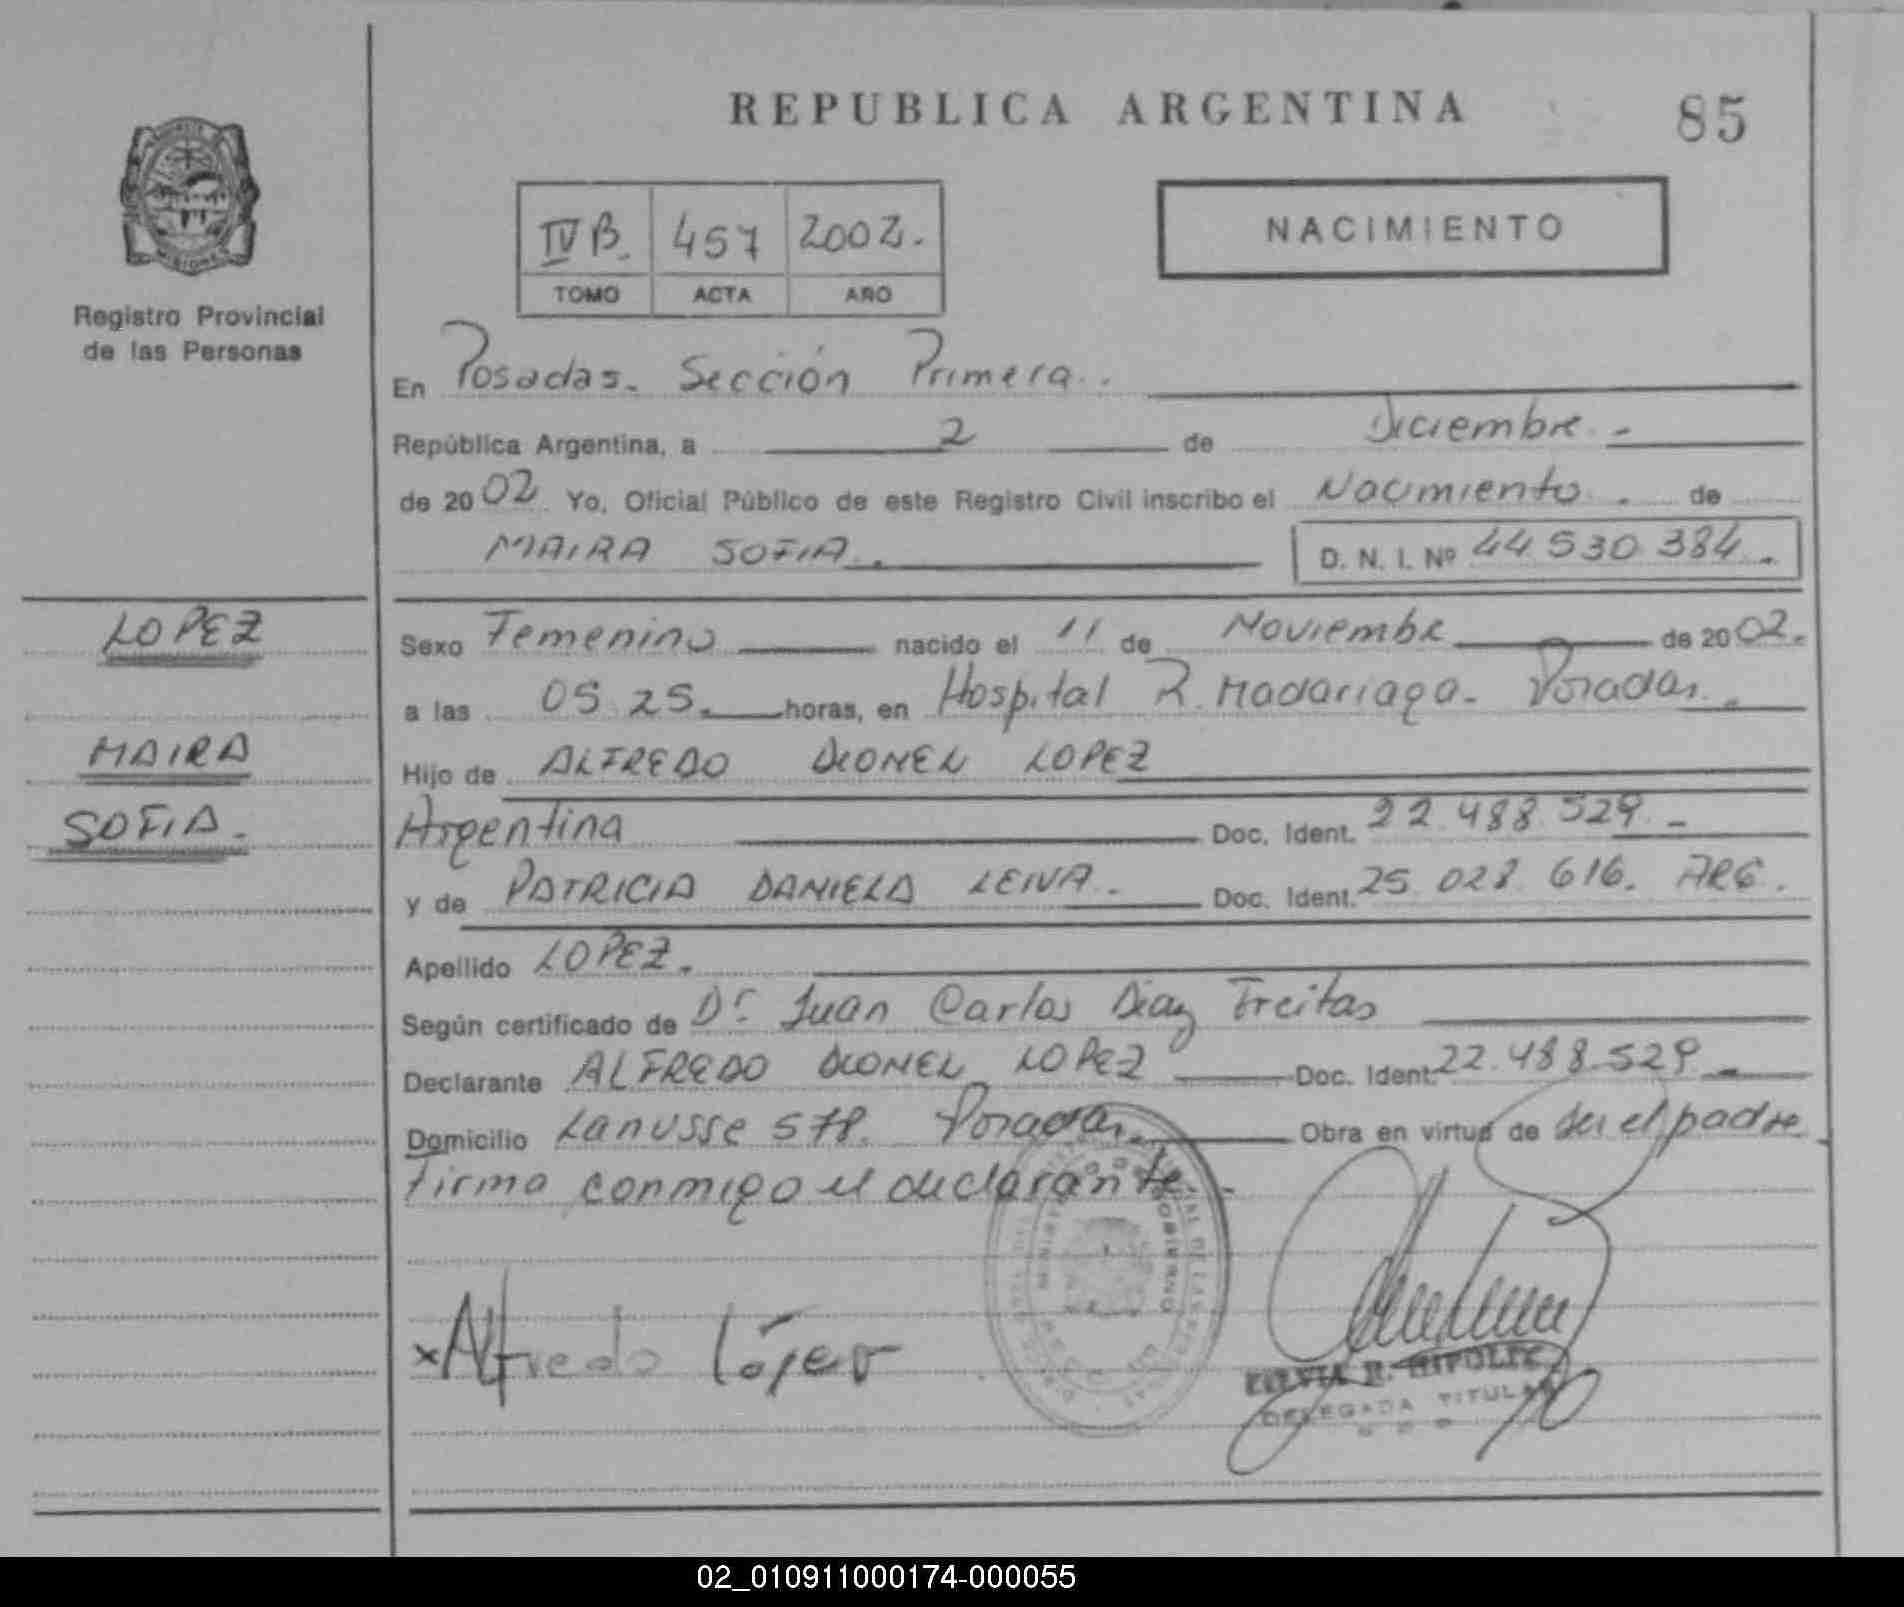 REPUBLICA ARGENTINA
85
MISIONES
Registro Provincial
de las Personas
IV B. 457 2002.
TOMO ACTA AÑO
NACIMIENTO
En Posadas. Sección Primera.
República Argentina, a 2 de Diciembre.
de 2002 Yo, Oficial Público de este Registro Civil inscribo el Nacimiento. de
MAIRA SOFIA. D. N. I. Nº 44.530.384.
LOPEZ
MAIRA
SOFIA.
Sexo Femenino nacido el 11 de Noviembre de 2002.
a las 05.25. horas, en Hospital R. Madariaga. Posadas.
Hijo de ALFREDO LIONEL LOPEZ
Argentina Doc. Ident. 22.488.529.
y de PATRICIA DANIELA LEIVA. Doc. Ident. 25.028.616. ARG.
Apellido LOPEZ.
Según certificado de Dr. Juan Carlos Diaz Freitas
Declarante ALFREDO LIONEL LOPEZ Doc. Ident. 22.488.529.
Domicilio Lanusse Posadas. Obra en virtud de ser el padre
Firma conmigo el declarante.
x Alfredo López
DELEGADA TITULAR
02_010911000174-000055